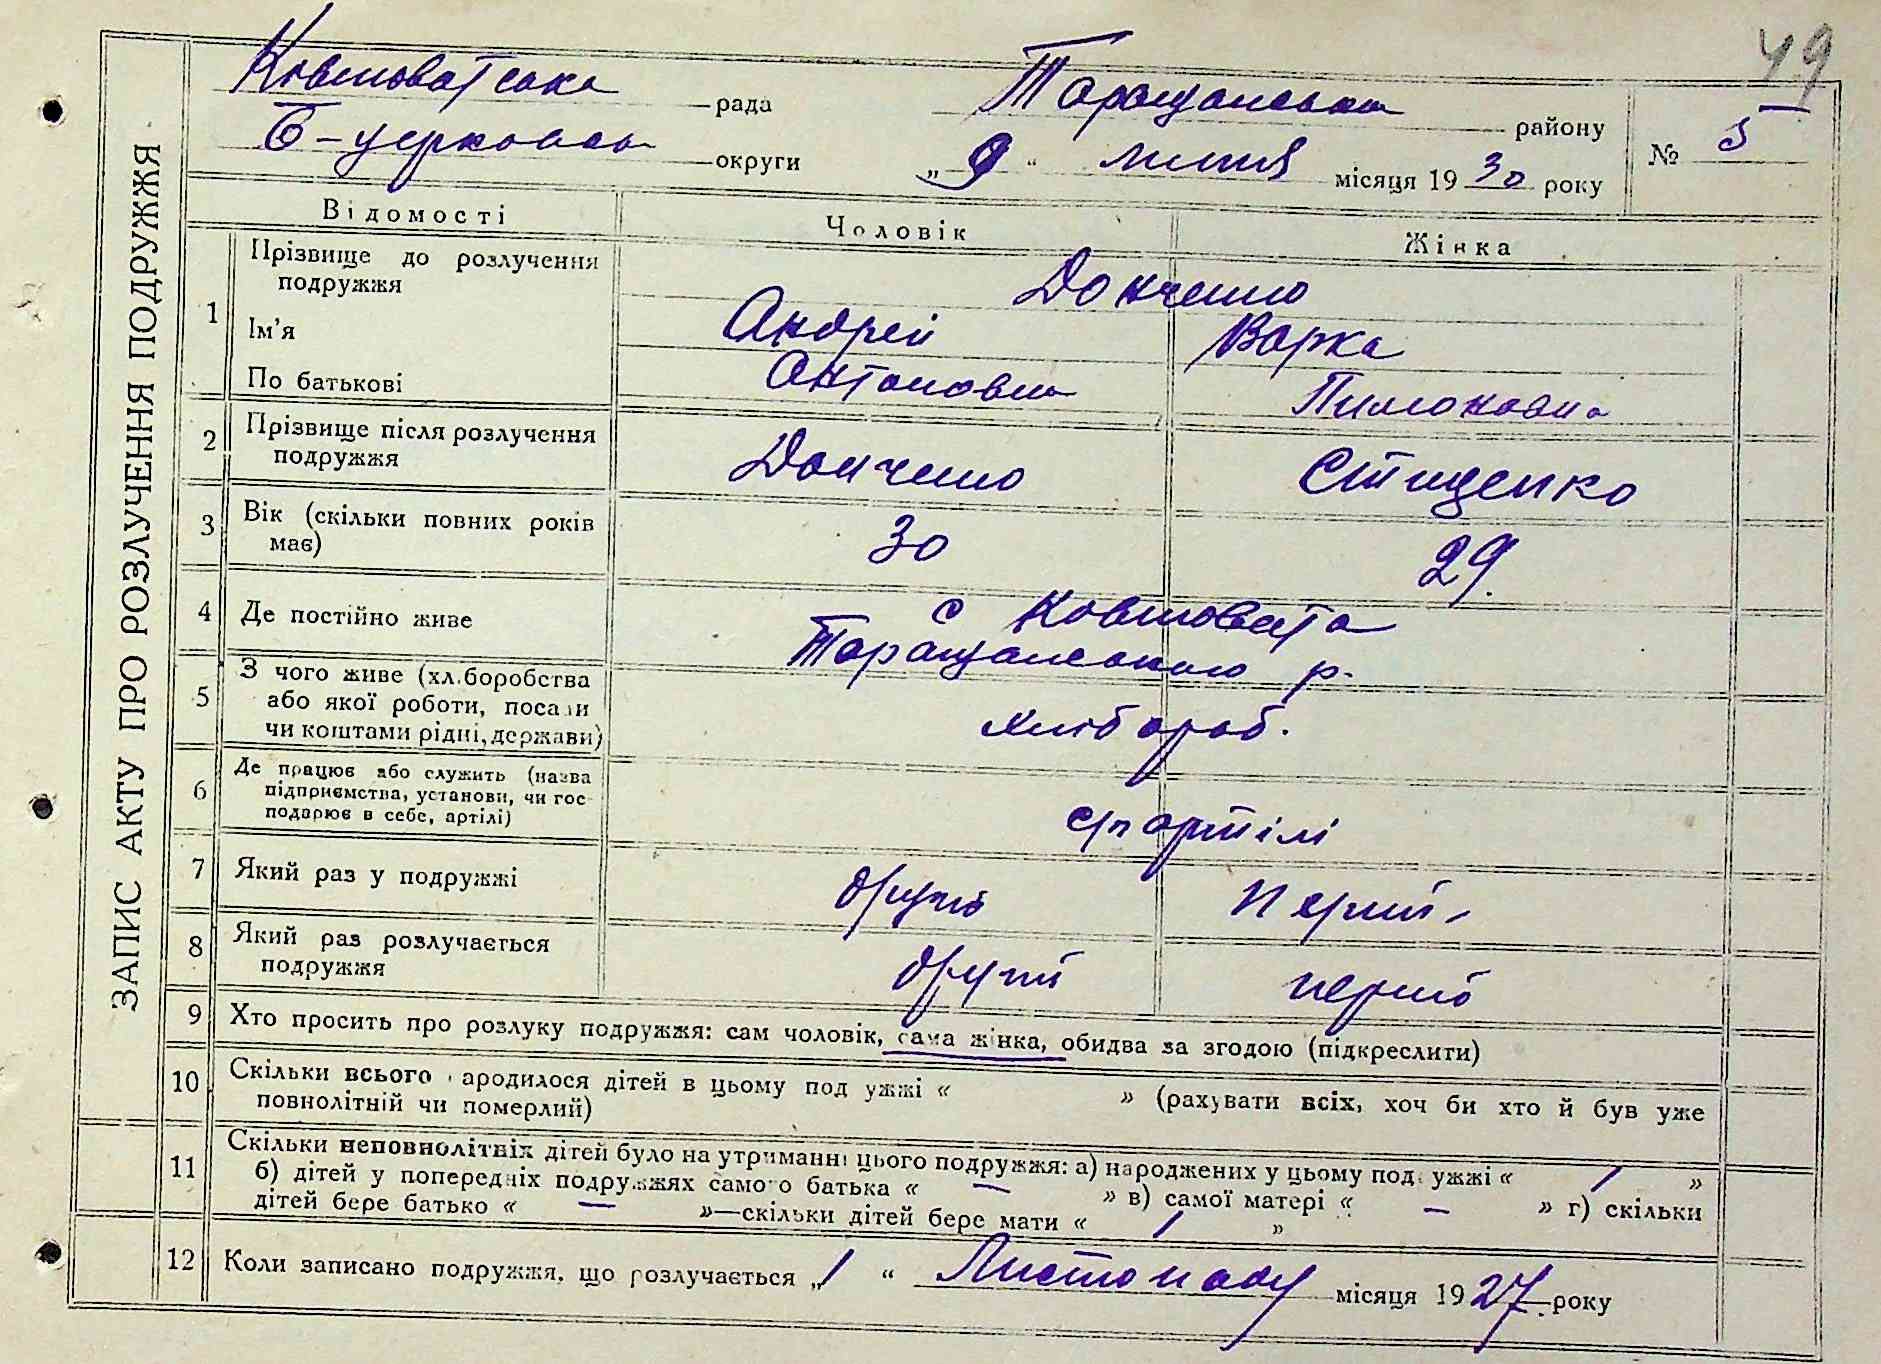 49
Ковшоватська рада Таращанськ району № 5
Б-церковськ округи „9“ липня місяця 1930 року
ЗАПИС АКТУ ПРО РОЗЛУЧЕННЯ ПОДРУЖЖЯ
Відомості Чоловік Жінка
1 Прізвище до розлучення
подружжя Донченко
Ім'я Андрей Варка
По батькові Антонович Пилиповна
2 Прізвище після розлучення
подружжя Донченко Стищенко
3 Вік (скільки повних років
має) 30 29.
4 Де постійно живе с Ковшовата
Таращанського р.
5 З чого живе (хліборобства
або якої роботи, посади
чи коштами рідні, держави) хлібороб.
6 Де працює або служить (назва
підприємства, установи, чи гос-
подарює в себе, артілі) артілі
7 Який раз у подружжі другий перший
8 Який раз розлучається
подружжя другий перший
9 Хто просить про розлуку подружжя: сам чоловік, сама жінка, обидва за згодою (підкреслити)
10 Скільки всього народилося дітей в цьому подружжі « » (рахувати всіх, хоч би хто й був уже
повнолітній чи померлий)
11 Скільки неповнолітніх дітей було на утриманні цього подружжя: а) народжених у цьому подружжі « 1 »
б) дітей у попередніх подружжях самого батька « — » в) самої матері « — » г) скільки
дітей бере батько « — »—скільки дітей бере мати « 1 »
12 Коли записано подружжя, що розлучається „1“ Листопаду місяця 1927. року